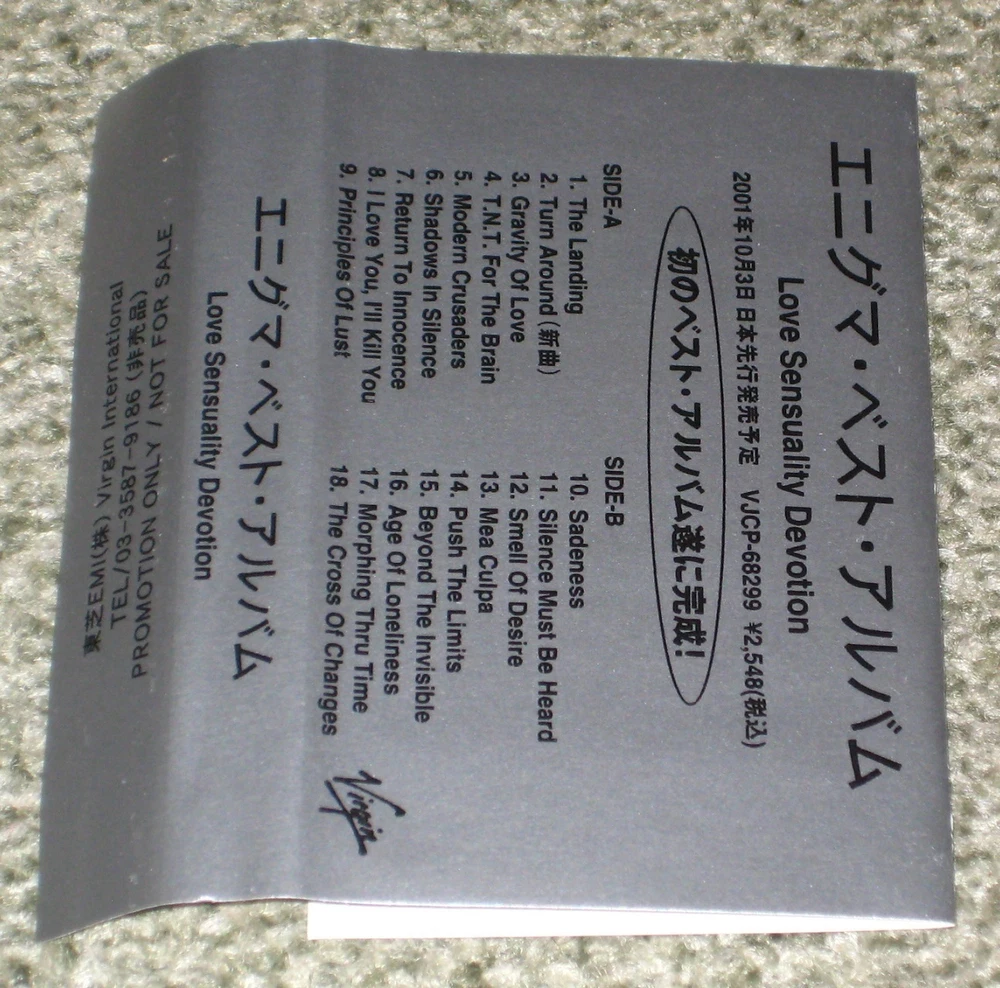 エニグマ・ベスト・アルバム
Love Sensuality Devotion
2001年10月3日 日本先行発売予定 VJCP-68299 ¥2,548(税込)
初のベスト・アルバム遂に完成!
SIDE-A
1. The Landing
2. Turn Around (新曲)
3. Gravity Of Love
4. T.N.T. For The Brain
5. Modern Crusaders
6. Shadows In Silence
7. Return To Innocence
8. I Love You, I'll Kill You
9. Principles Of Lust
SIDE-B
10. Sadeness
11. Silence Must Be Heard
12. Smell Of Desire
13. Mea Culpa
14. Push The Limits
15. Beyond The Invisible
16. Age Of Loneliness
17. Morphing Thru Time
18. The Cross Of Changes
Virgin
エニグマ・ベスト・アルバム
Love Sensuality Devotion
PROMOTION ONLY / NOT FOR SALE
TEL/03-3587-9186 (非売品)
東芝EMI(株) Virgin International